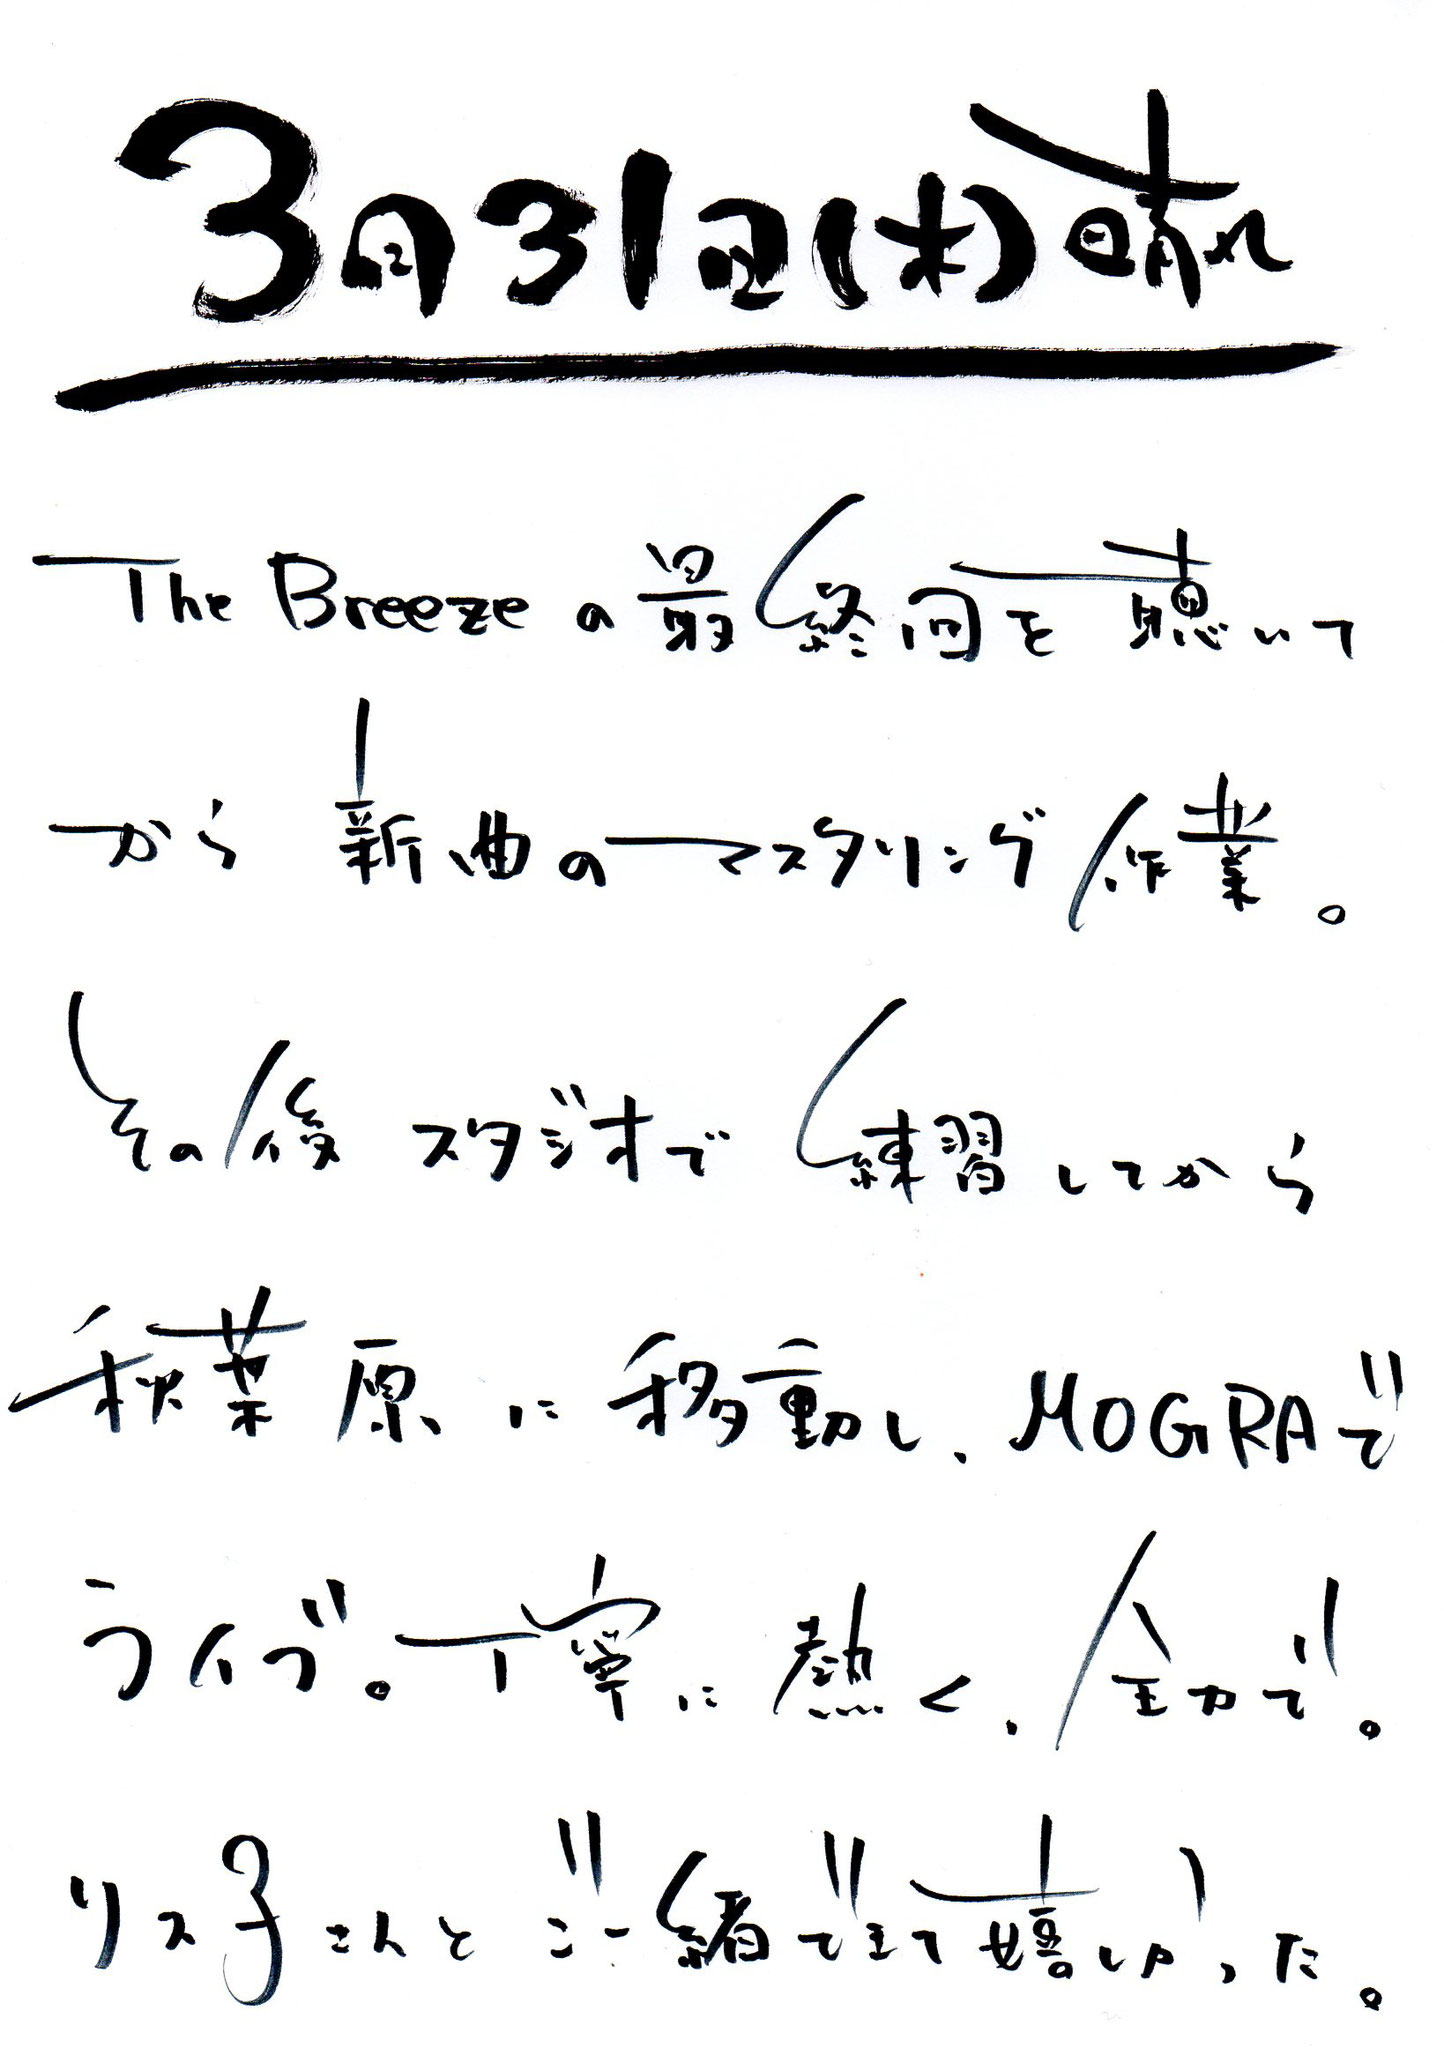 3月31日(木)晴れ
The Breezeの最終回を聴いて
から新曲のマスタリング作業。
その後スタジオで練習してから
秋葉原に移動し、MOGRAで
ライブ。丁寧に熱く、全力で。
リス子さんとご一緒できて嬉しかった。